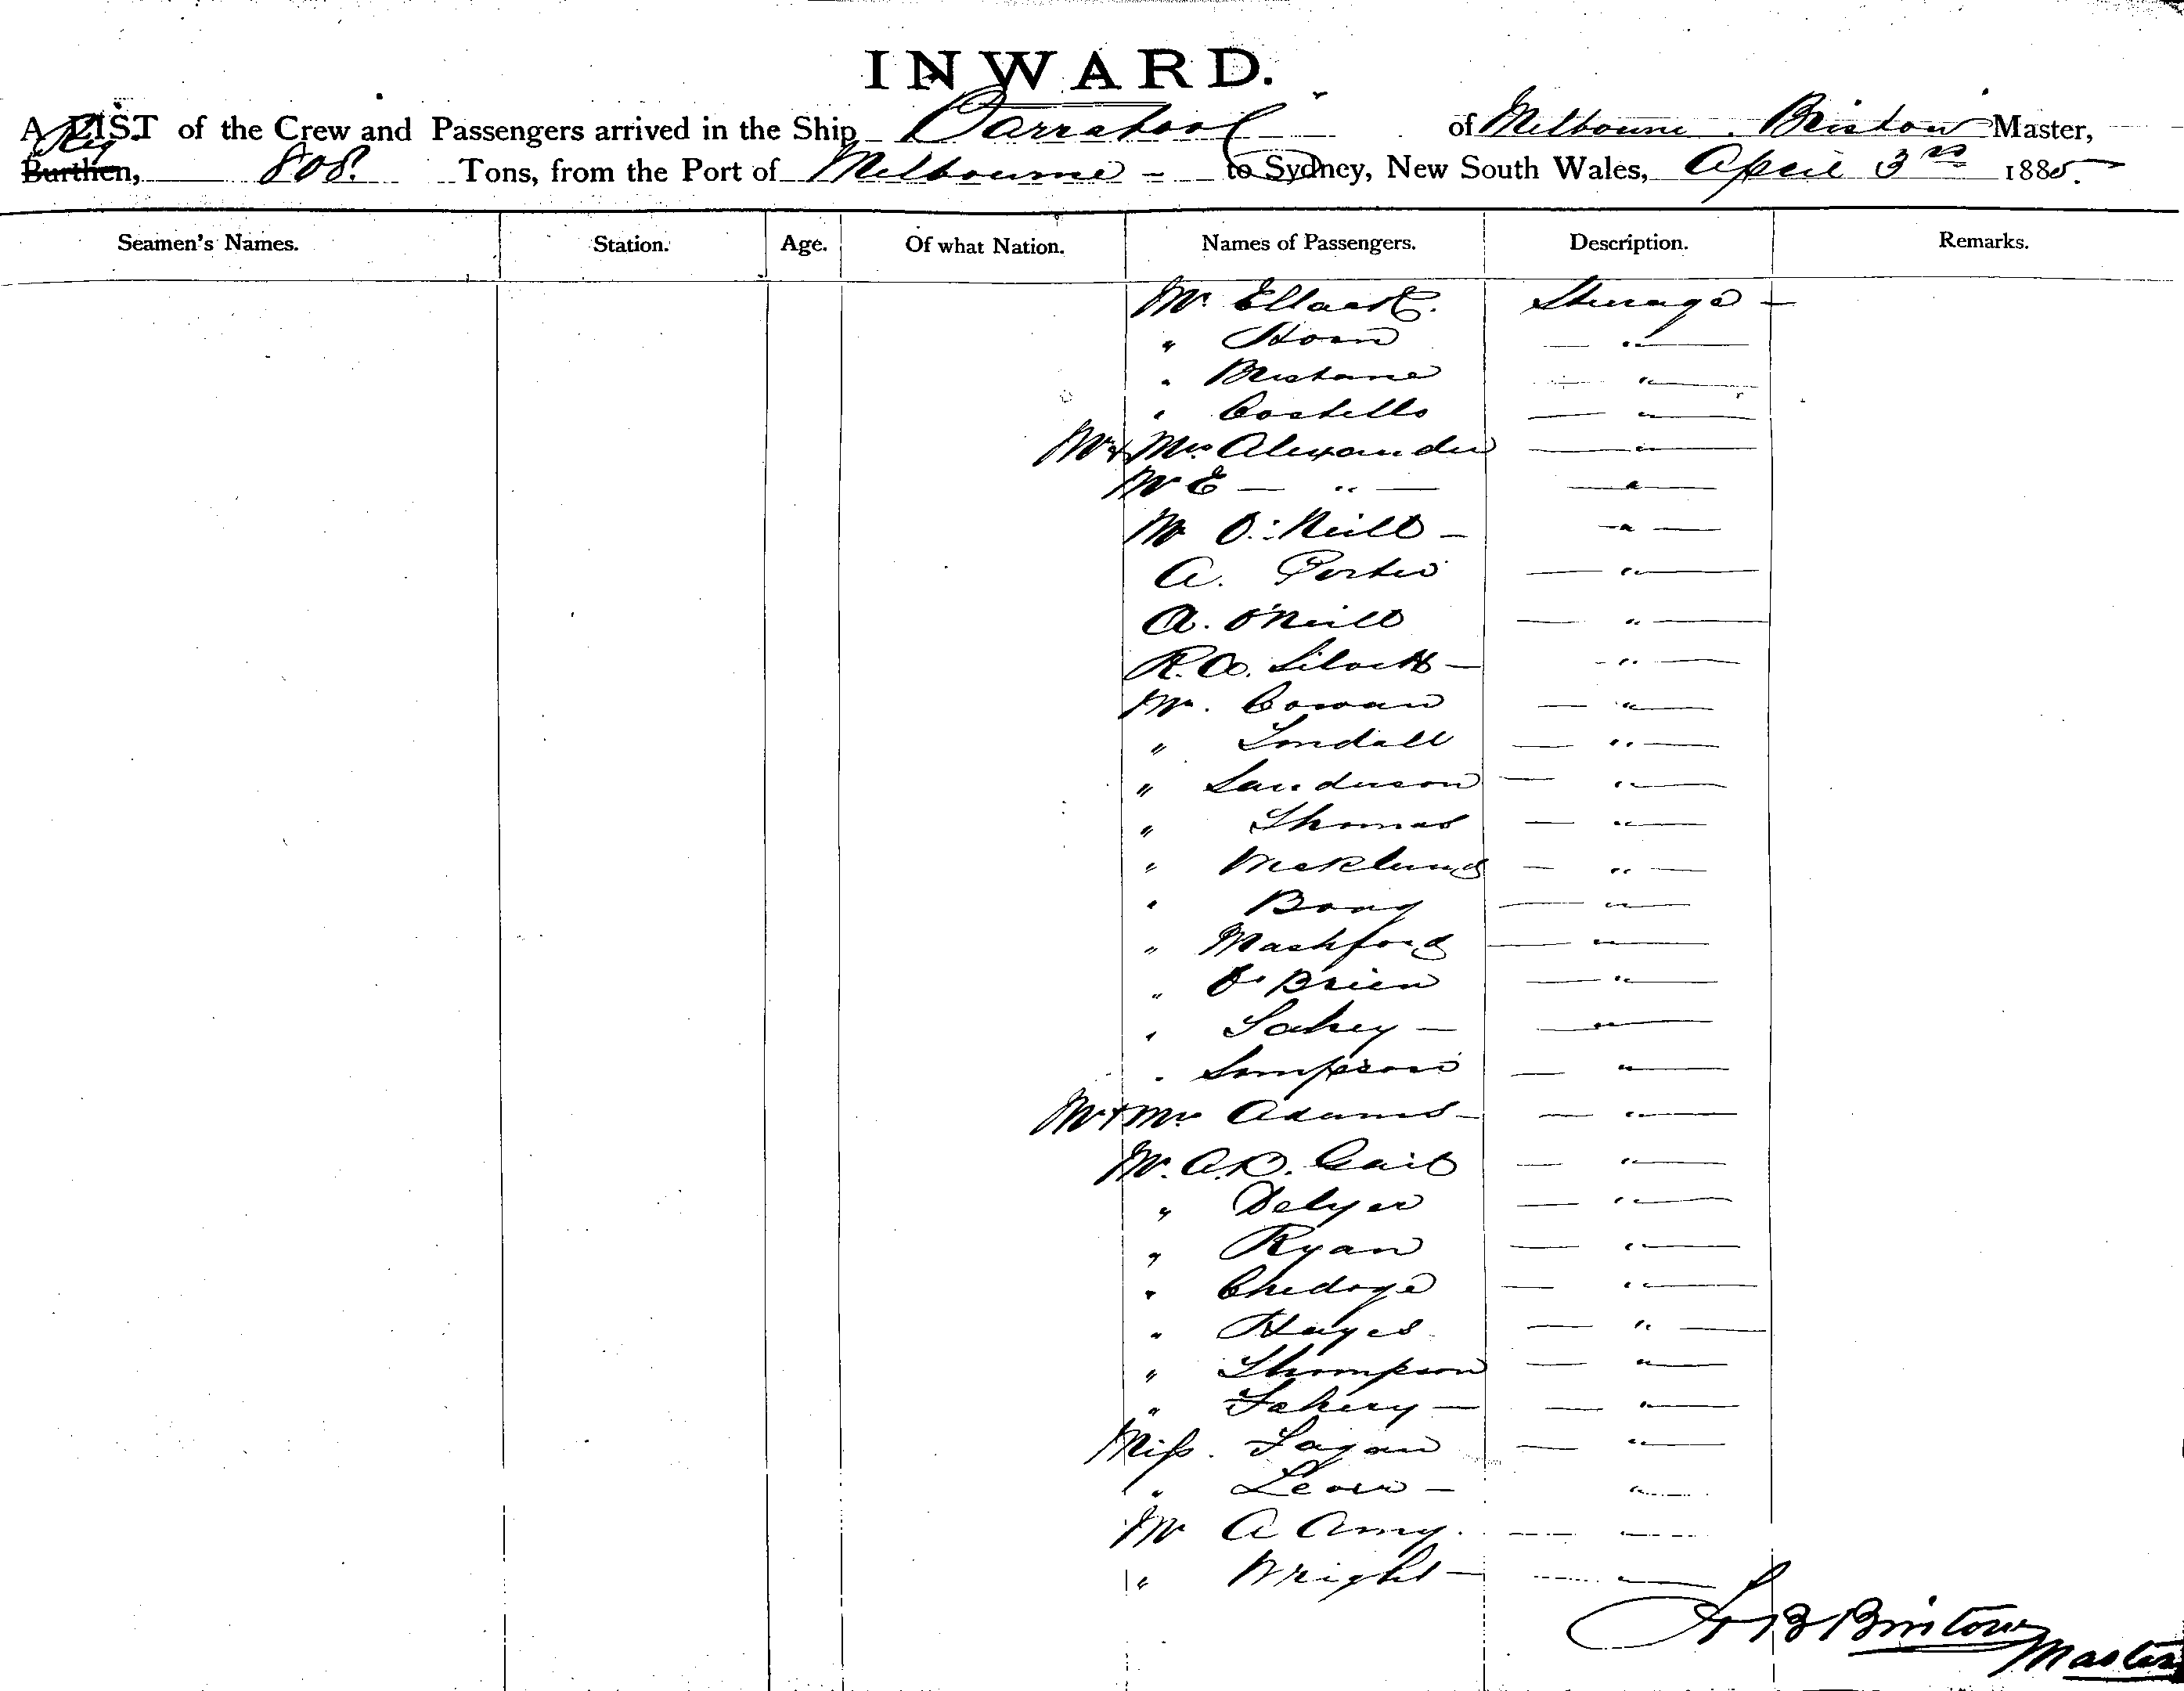 INWARD.
A LIST of the Crew and Passengers arrived in the Ship Barrabool of Melbourne. Bristow Master,
Reg
Burthen, 808. Tons, from the Port of Melbourne - to Sydney, New South Wales, April 3rd 1885.
Seamen's Names. Station. Age. Of what Nation. Names of Passengers. Description. Remarks.
Mr. Steerage -
" Horn — " —
" Brisbane — " —
" Costello — " —
Mr & Mrs Alexander — " —
Mr E — " — — " —
Mr O'Neill - — " —
A. Porter — " —
A. O'Neill — " —
R. - — " —
Mr. Cowan — " —
" — " —
" Sanderson — " —
" Thomas — " —
" — " —
" Bong — " —
" Mashford — " —
" O'Brien — " —
" — — " —
" Sampson — " —
Mr & Mrs Adams - — " —
Mr. — " —
" — " —
" Ryan — " —
" — " —
" Hayes — " —
" Thompson — " —
" — — " —
Miss. Fagan — " —
" - " —
Mr A Amy. — " —
" Wright - — " —
B Bristow
Master